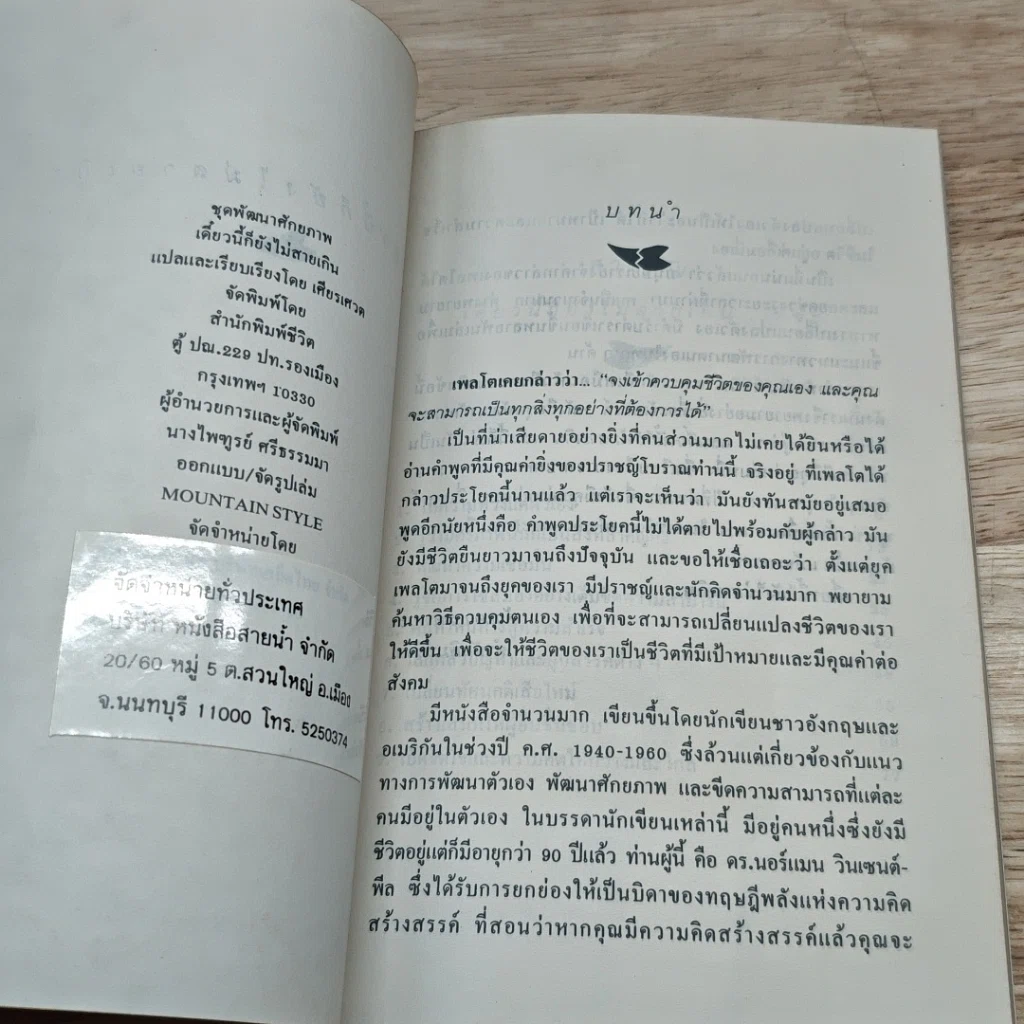 ชุดพัฒนาศักยภาพ
เดี๋ยวนี้ก็ยังไม่สายเกิน
แปลและเรียบเรียงโดย เศียรเศวต
จัดพิมพ์โดย
สำนักพิมพ์ชีวิต
ตู้ ปณ.229 ปท.รองเมือง
กรุงเทพฯ 10330
ผู้อำนวยการและผู้จัดพิมพ์
นางไพฑูรย์ ศรีธรรมมา
ออกแบบ/จัดรูปเล่ม
MOUNTAIN STYLE
จัดจำหน่ายโดย
จัดจำหน่ายทั่วประเทศ
บริษัท หนังสือสายน้ำ จำกัด
20/60 หมู่ 5 ต.สวนใหญ่ อ.เมือง
จ.นนทบุรี 11000 โทร. 5250374
บทนำ
เพลโตเคยกล่าวว่า... "จงเข้าควบคุมชีวิตของคุณเอง และคุณ
จะสามารถเป็นทุกสิ่งทุกอย่างที่ต้องการได้"
เป็นที่น่าเสียดายอย่างยิ่งที่คนส่วนมากไม่เคยได้ยินหรือได้
อ่านคำพูดที่มีคุณค่ายิ่งของปราชญ์โบราณท่านนี้ จริงอยู่ ที่เพลโตได้
กล่าวประโยคนี้นานแล้ว แต่เราจะเห็นว่า มันยังทันสมัยอยู่เสมอ
พูดอีกนัยหนึ่งคือ คำพูดประโยคนี้ไม่ได้ตายไปพร้อมกับผู้กล่าว มัน
ยังมีชีวิตยืนยาวมาจนถึงปัจจุบัน และขอให้เชื่อเถอะว่า ตั้งแต่ยุค
เพลโตมาจนถึงยุคของเรา มีปราชญ์และนักคิดจำนวนมาก พยายาม
ค้นหาวิธีควบคุมตนเอง เพื่อที่จะสามารถเปลี่ยนแปลงชีวิตของเรา
ให้ดีขึ้น เพื่อจะให้ชีวิตของเราเป็นชีวิตที่มีเป้าหมายและมีคุณค่าต่อ
สังคม
มีหนังสือจำนวนมาก เขียนขึ้นโดยนักเขียนชาวอังกฤษและ
อเมริกันในช่วงปี ค.ศ. 1940-1960 ซึ่งล้วนแต่เกี่ยวข้องกับแนว
ทางการพัฒนาตัวเอง พัฒนาศักยภาพ และขีดความสามารถที่แต่ละ
คนมีอยู่ในตัวเอง ในบรรดานักเขียนเหล่านี้ มีอยู่คนหนึ่งซึ่งยังมี
ชีวิตอยู่แต่ก็มีอายุกว่า 90 ปีแล้ว ท่านผู้นี้ คือ ดร.นอร์แมน วินเซนต์-
พีล ซึ่งได้รับการยกย่องให้เป็นบิดาของทฤษฎีพลังแห่งความคิด
สร้างสรรค์ ที่สอนว่าหากคุณมีความคิดสร้างสรรค์แล้วคุณจะ